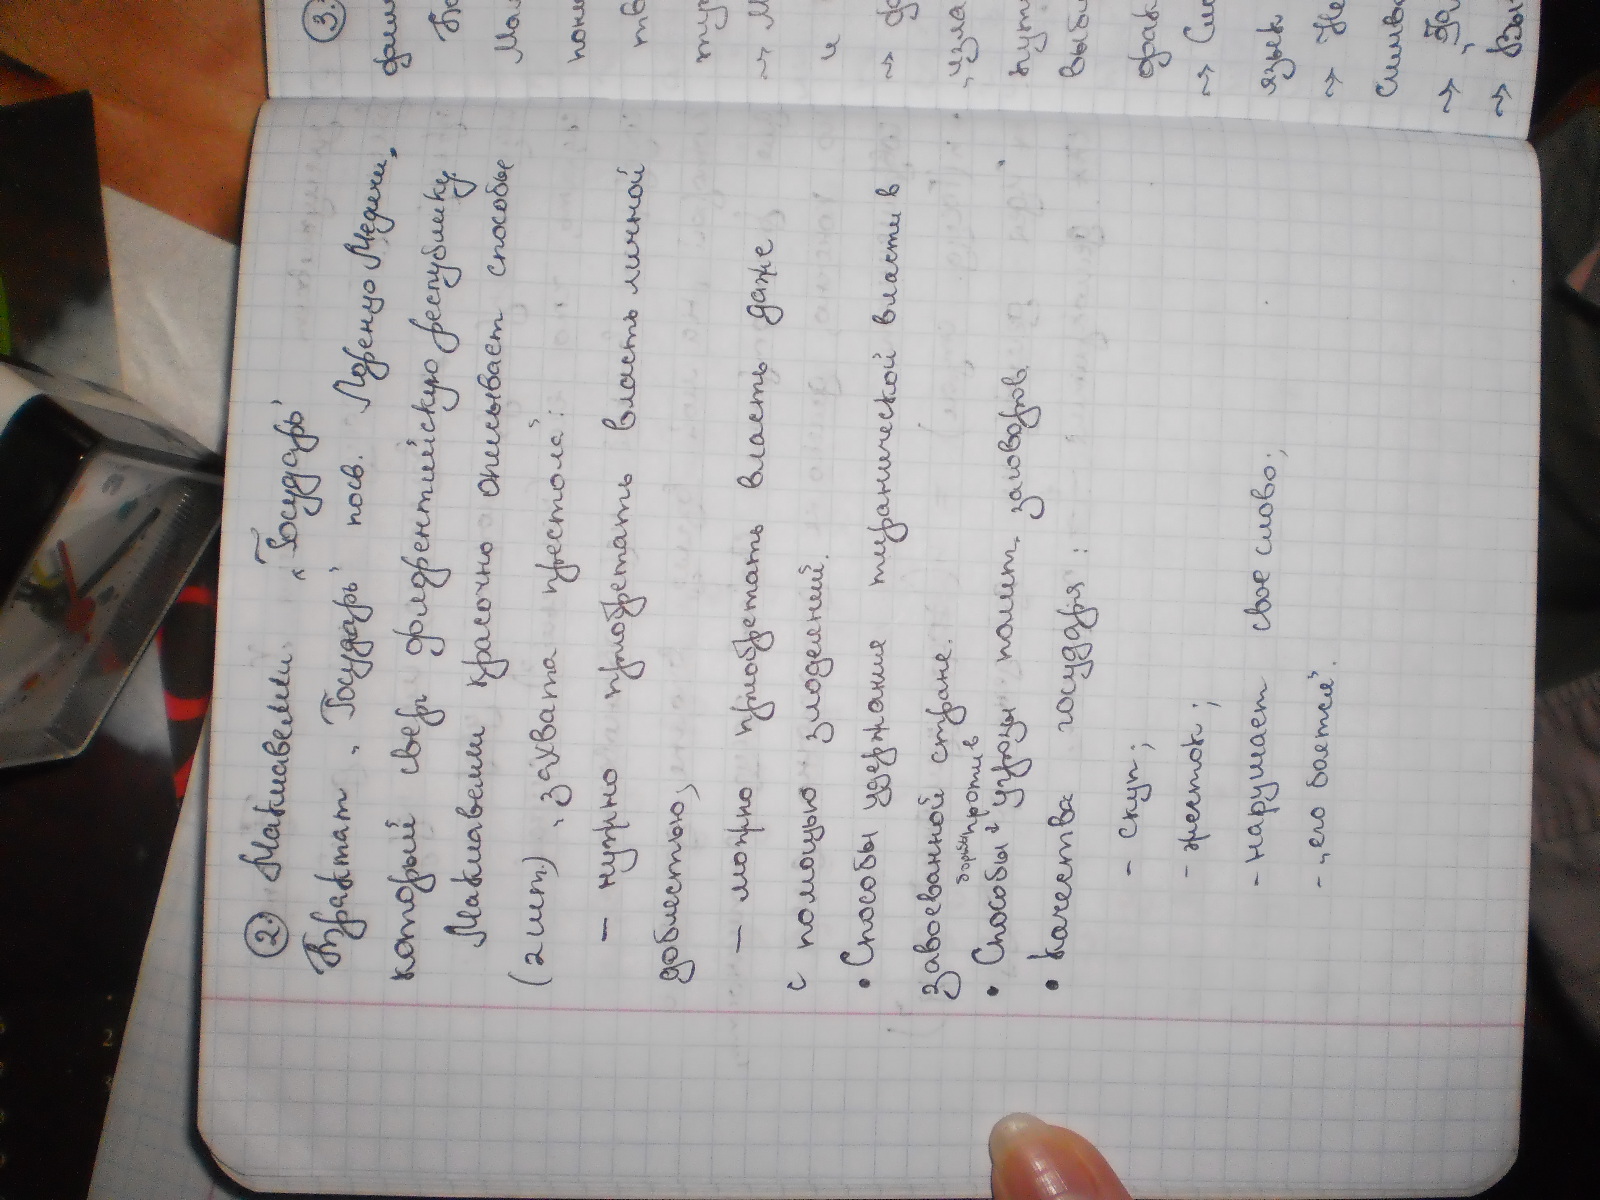 2. Макиавелли. „Государь"
Трактат „Государь" посв. Лоренцо Медичи,
который сверг флорентийскую республику
Макиавелли красочно описывает способы
(2 шт.) „захвата престола":
— нужно приобретать власть личной
доблестью;
— можно приобретать власть даже
с помощью злодеяний.
• Способы удержание тиранической власти в
завоеванной стране.
борьбы против
• Способы в угрозы полит. заговоров
• Качества государя:
- скуп;
- жесток;
- нарушает свое слово;
- „его боятся".
3.